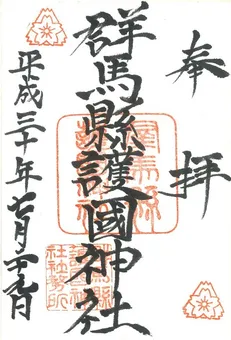 奉拝
群馬縣護國神社
平成三十年七月十九日